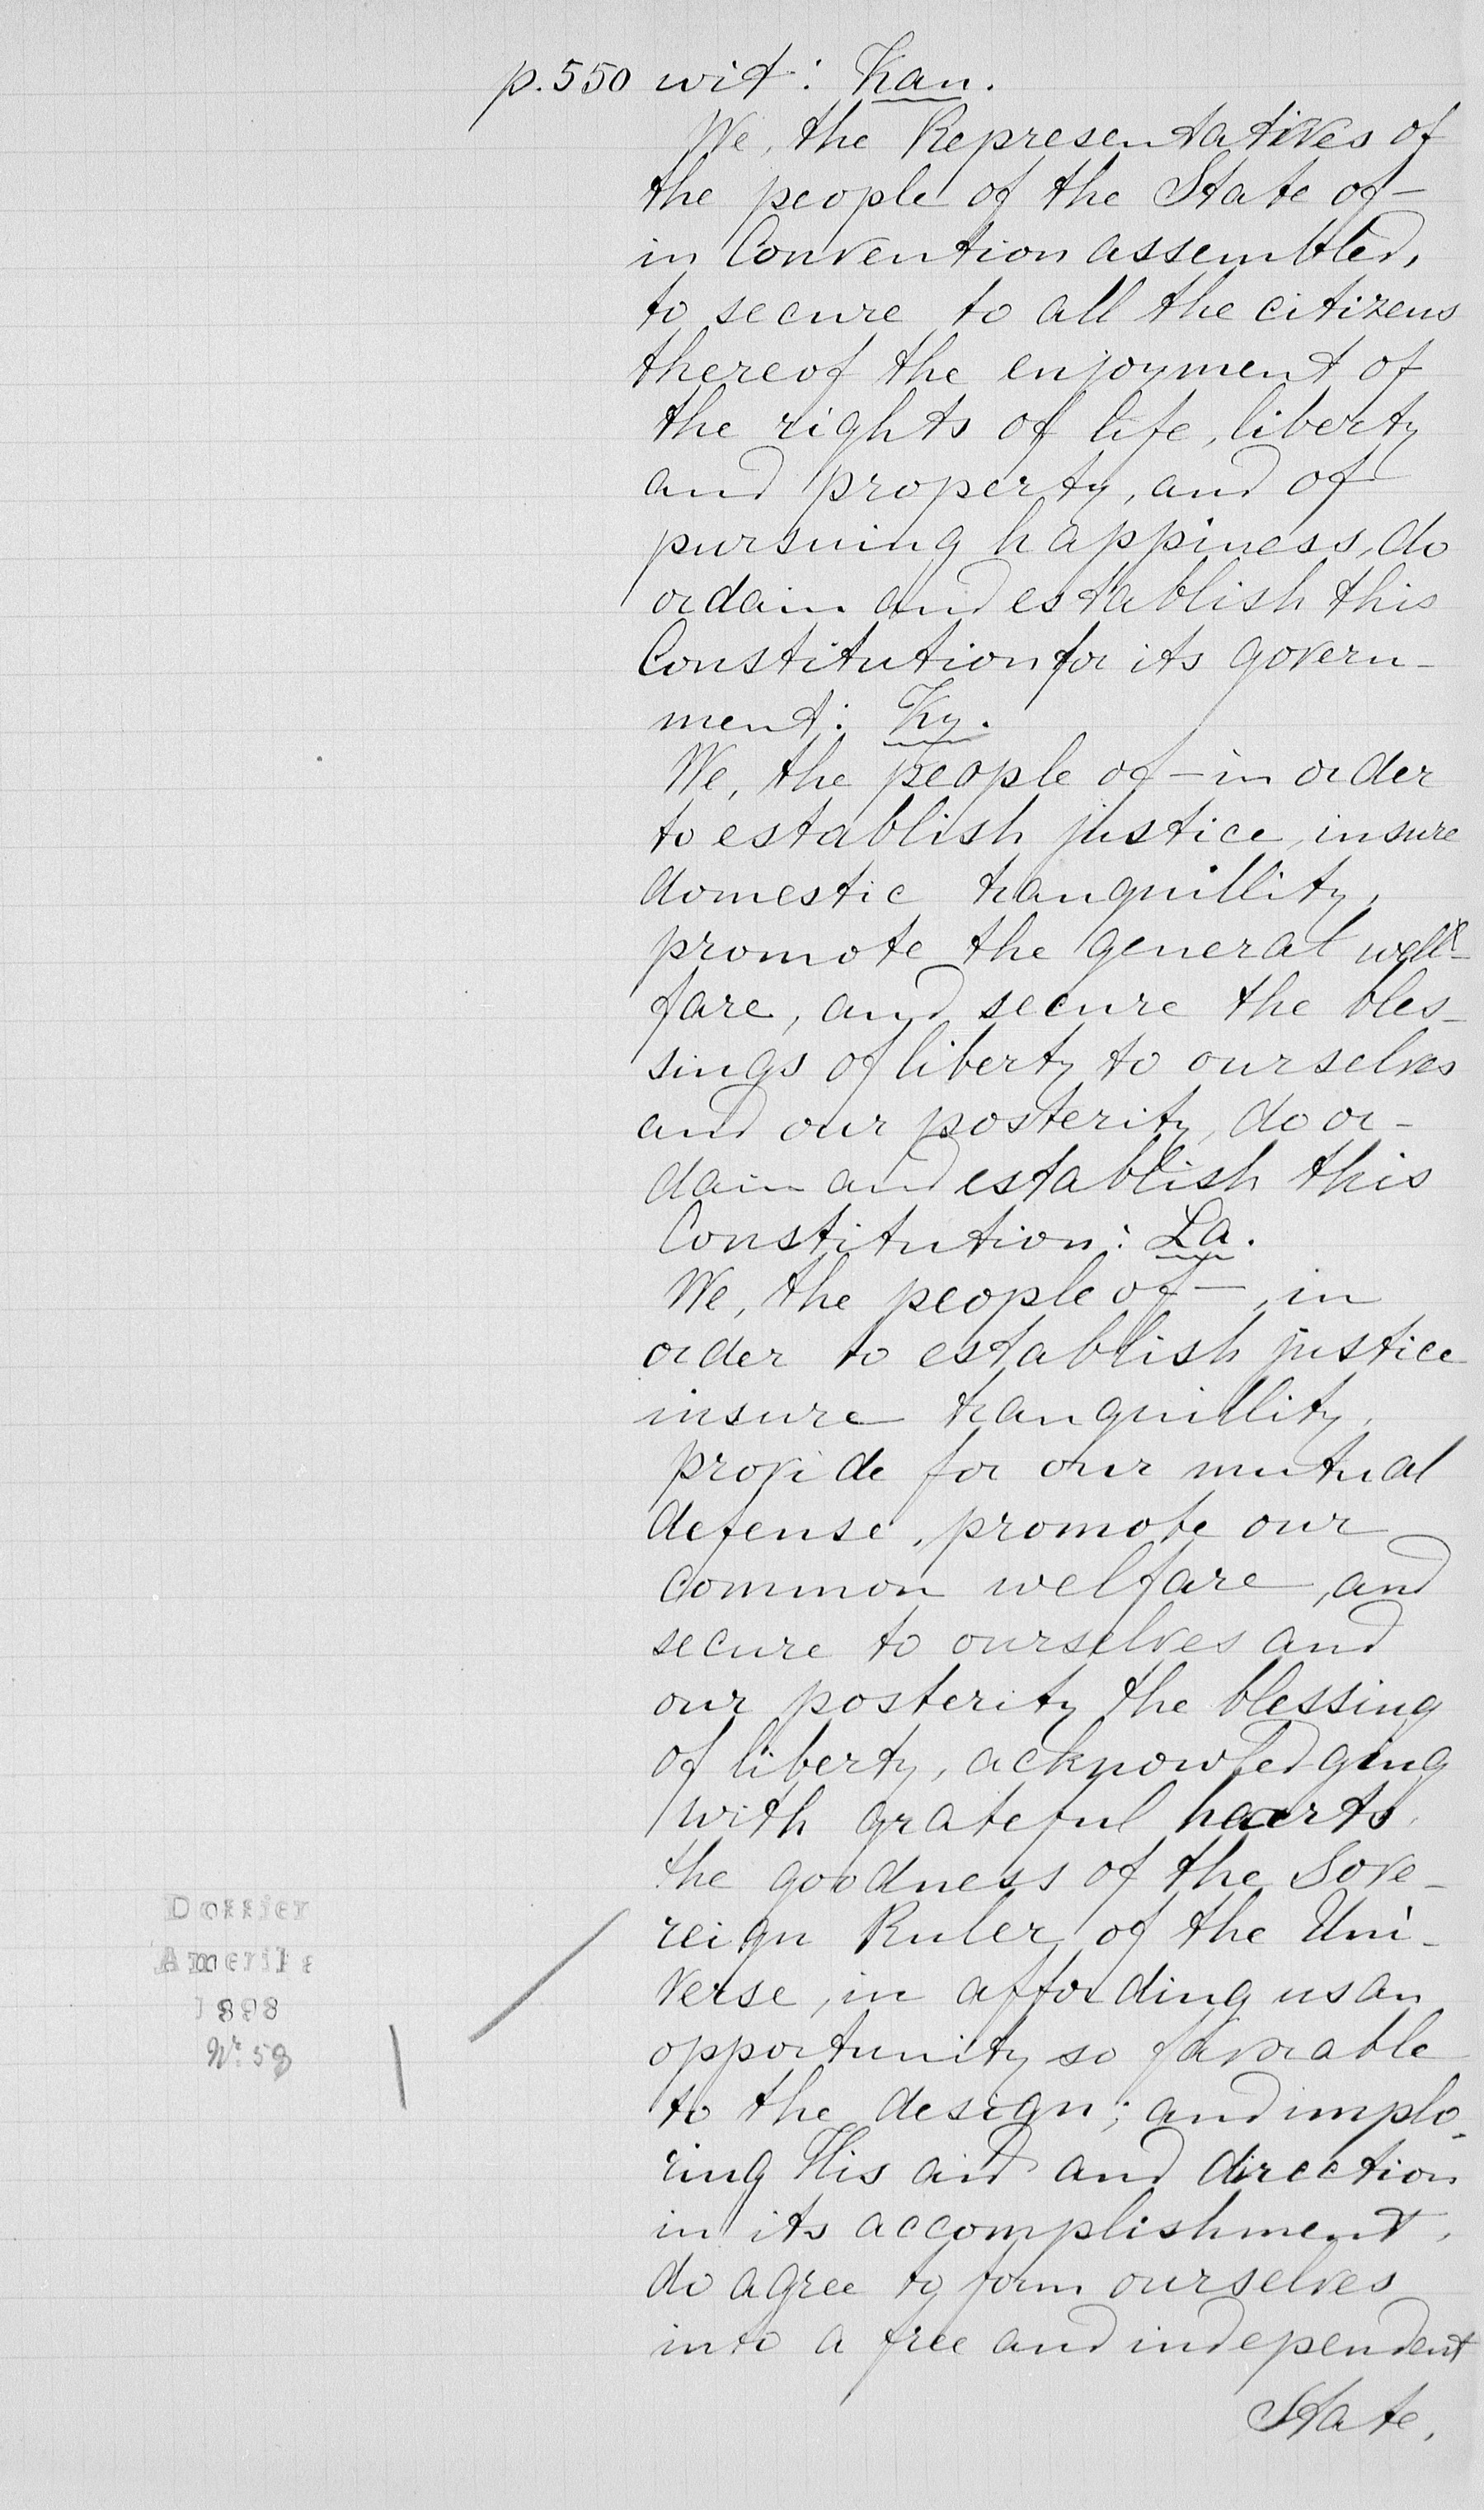 p. 550 wit: Kan.
We, the Representatives of
the people of the State of —
in Convention assembled,
to secure to all the citizens
thereof the enjoyment of
the rights of life, liberty
and property, and of
pursuing happiness, do
ordain and establish this
Constitution for its govern-
ment: Ky.
We, the people of — in order
to establish justice, insure
domestic tranquillity,
promote the general well-
fare, and secure the bles-
sings of liberty to ourselves
and our posterity, do or-
dain and establish this
Constitution: La.
We, the people of —, in
order to establish justice
insure tranquillity,
provide for our mutual
defense, promote our
common welfare, and
secure to ourselves and
our posterity the blessing
of liberty, acknowledging
with grateful hearts,
the goodness of the Sove-
reign Ruler of the Uni-
verse, in affording us an
opportunity so favorable
to the design; and implo-
ring His aid and direction
in its accomplishment,
do agree to form ourselves
into a free and independent
State,
Dossier
Amerika
1898
Nr. 58